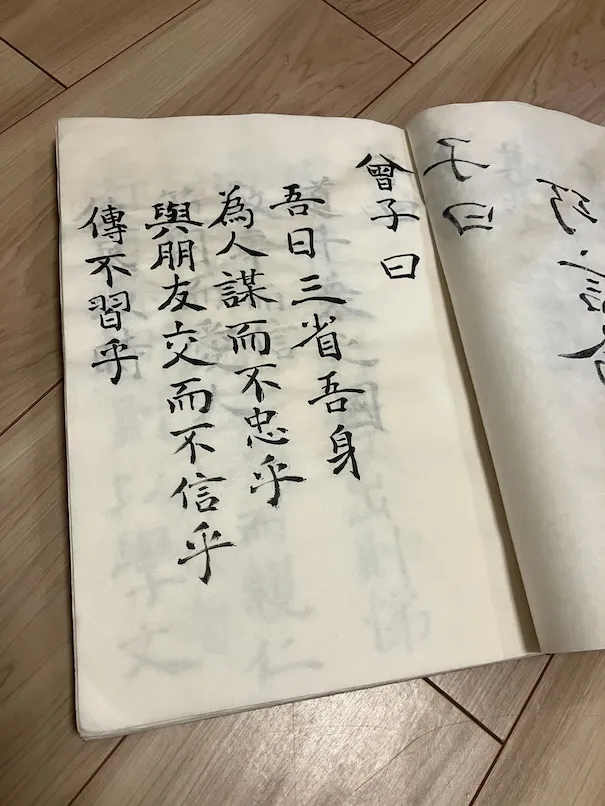 子曰
巧言令
曾子曰
吾日三省吾身
為人謀而不忠乎
與朋友交而不信乎
傳不習乎